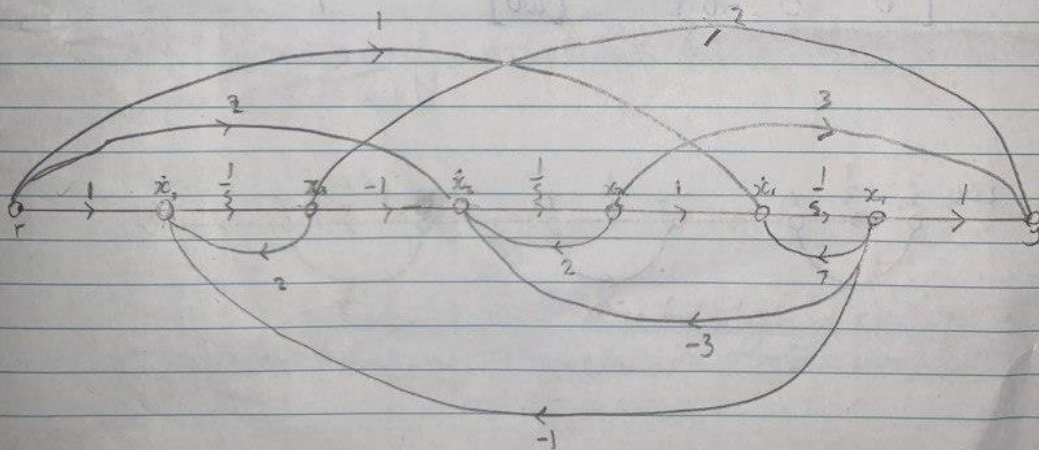 1
2
2
3
r 1 ẋ₃ 1/s x₃ -1 ẋ₂ 1/s x₂ 1 ẋ₁ 1/s x₁ 1 y
2
2
-3
-1